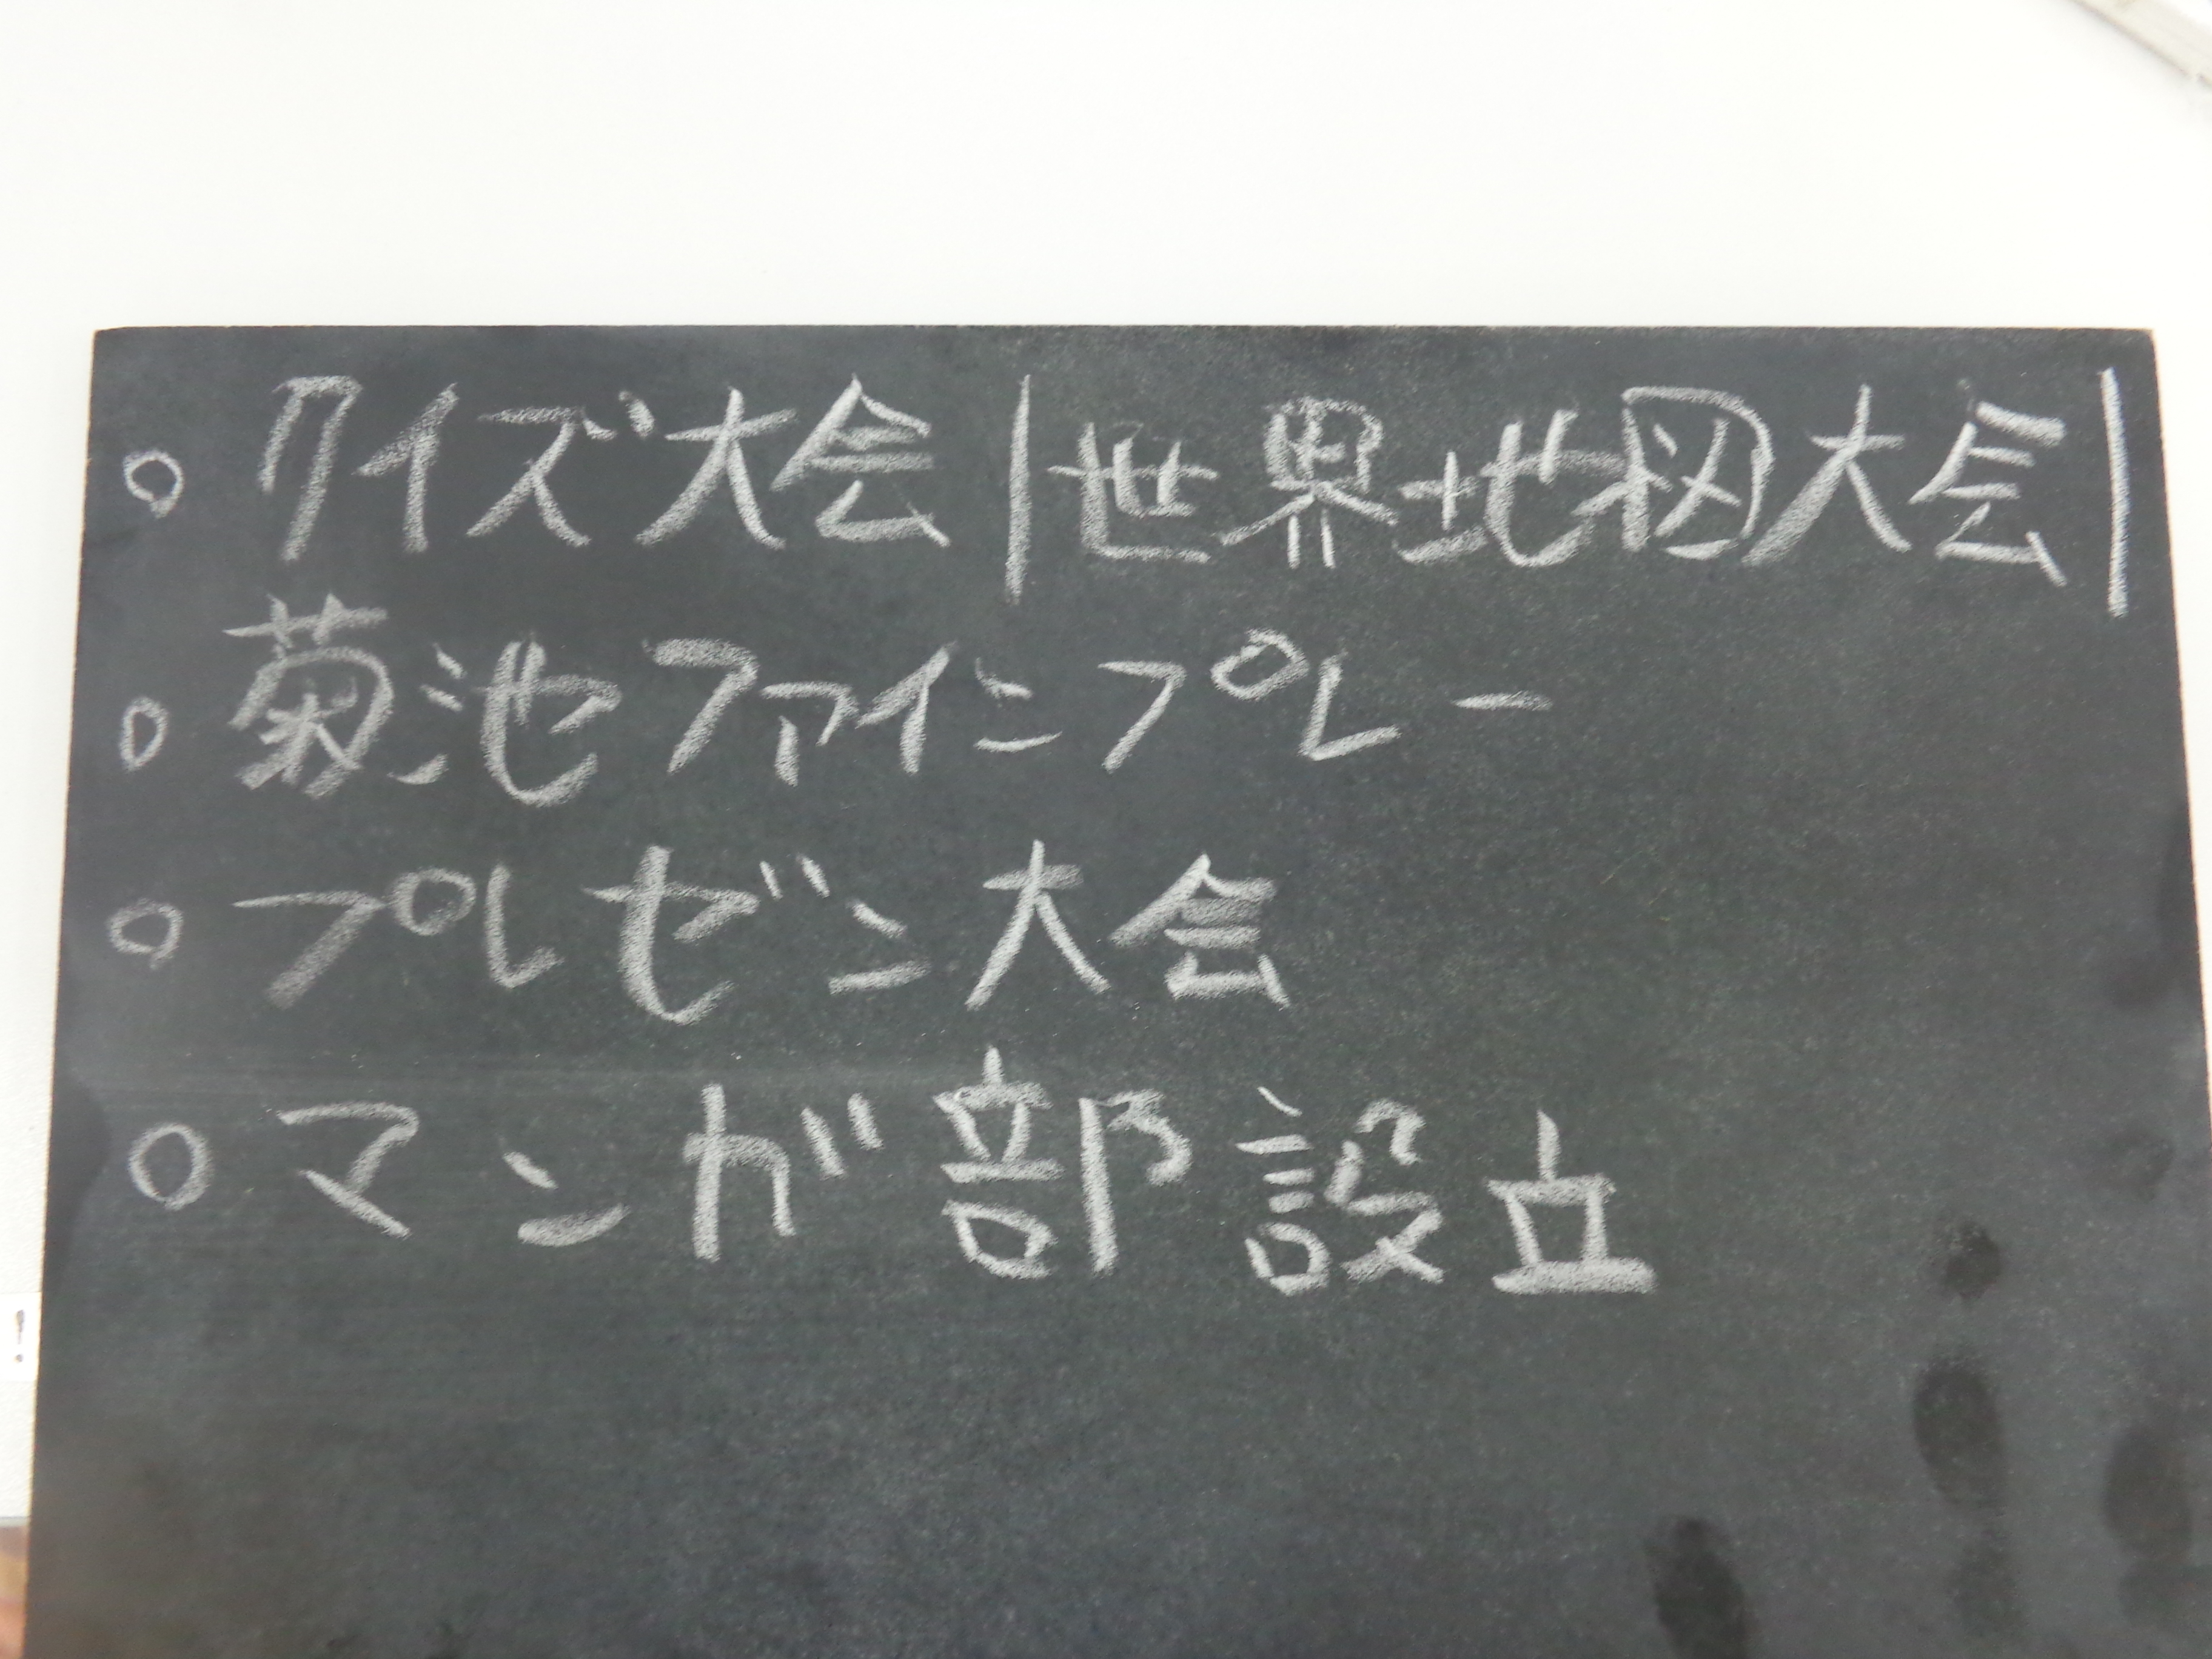 ○ クイズ大会|世界地図大会|
○ 菊池ファインプレー
○ プレゼン大会
○ マンガ部設立
!